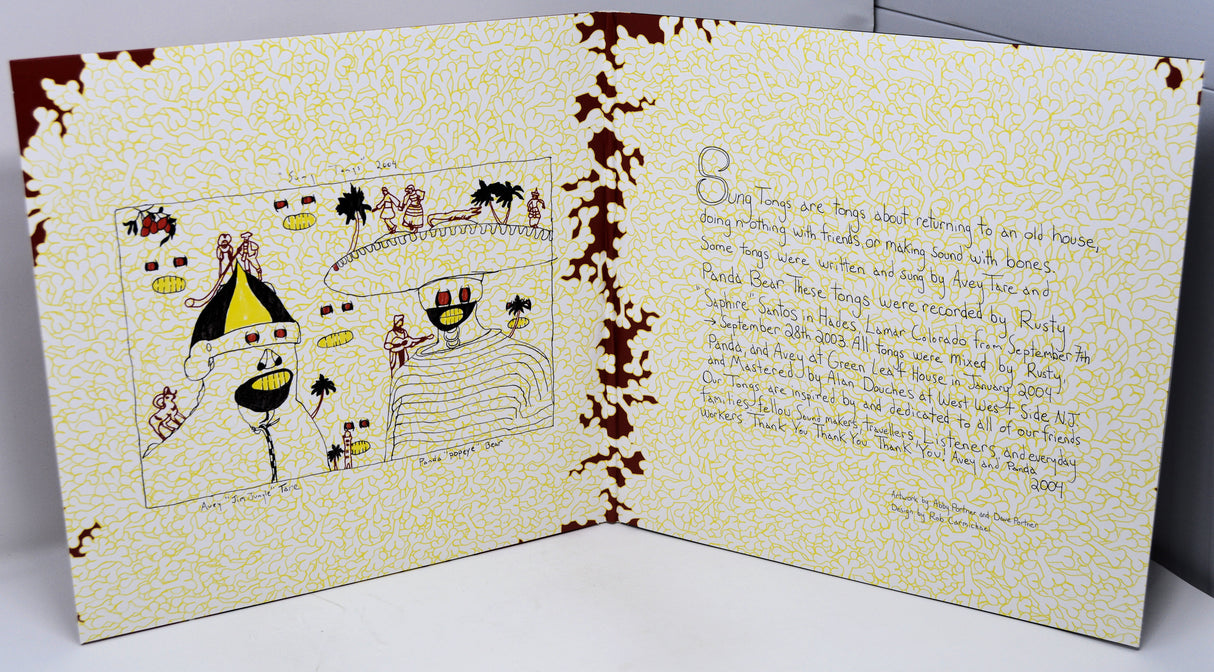 "Sung Tongs" 2004
Avey "Jim Jungle" Tare
Panda "popeye" Bear
Sung Tongs are tongs about returning to an old house,
doing nothing with friends or making sound with bones.
Some tongs were written and sung by Avey Tare and
Panda Bear. These tongs were recorded by Rusty
"Saphire" Santos in Hades, Lamar Colorado from September 7th
→ September 28th 2003 All tongs were mixed by Rusty,
Panda, and Avey at Green Leaf House in January 2004
and Mastered by Alan Douches at West West Side N.J.
Our Tongs are inspired by and dedicated to all of our friends
families, fellow Sound makers, travellers, Listeners, and everyday
workers Thank You Thank You Thank You! Avey and Panda
2004
Artwork by Abby Portner and Dave Portner
Design by Rob Carmichael